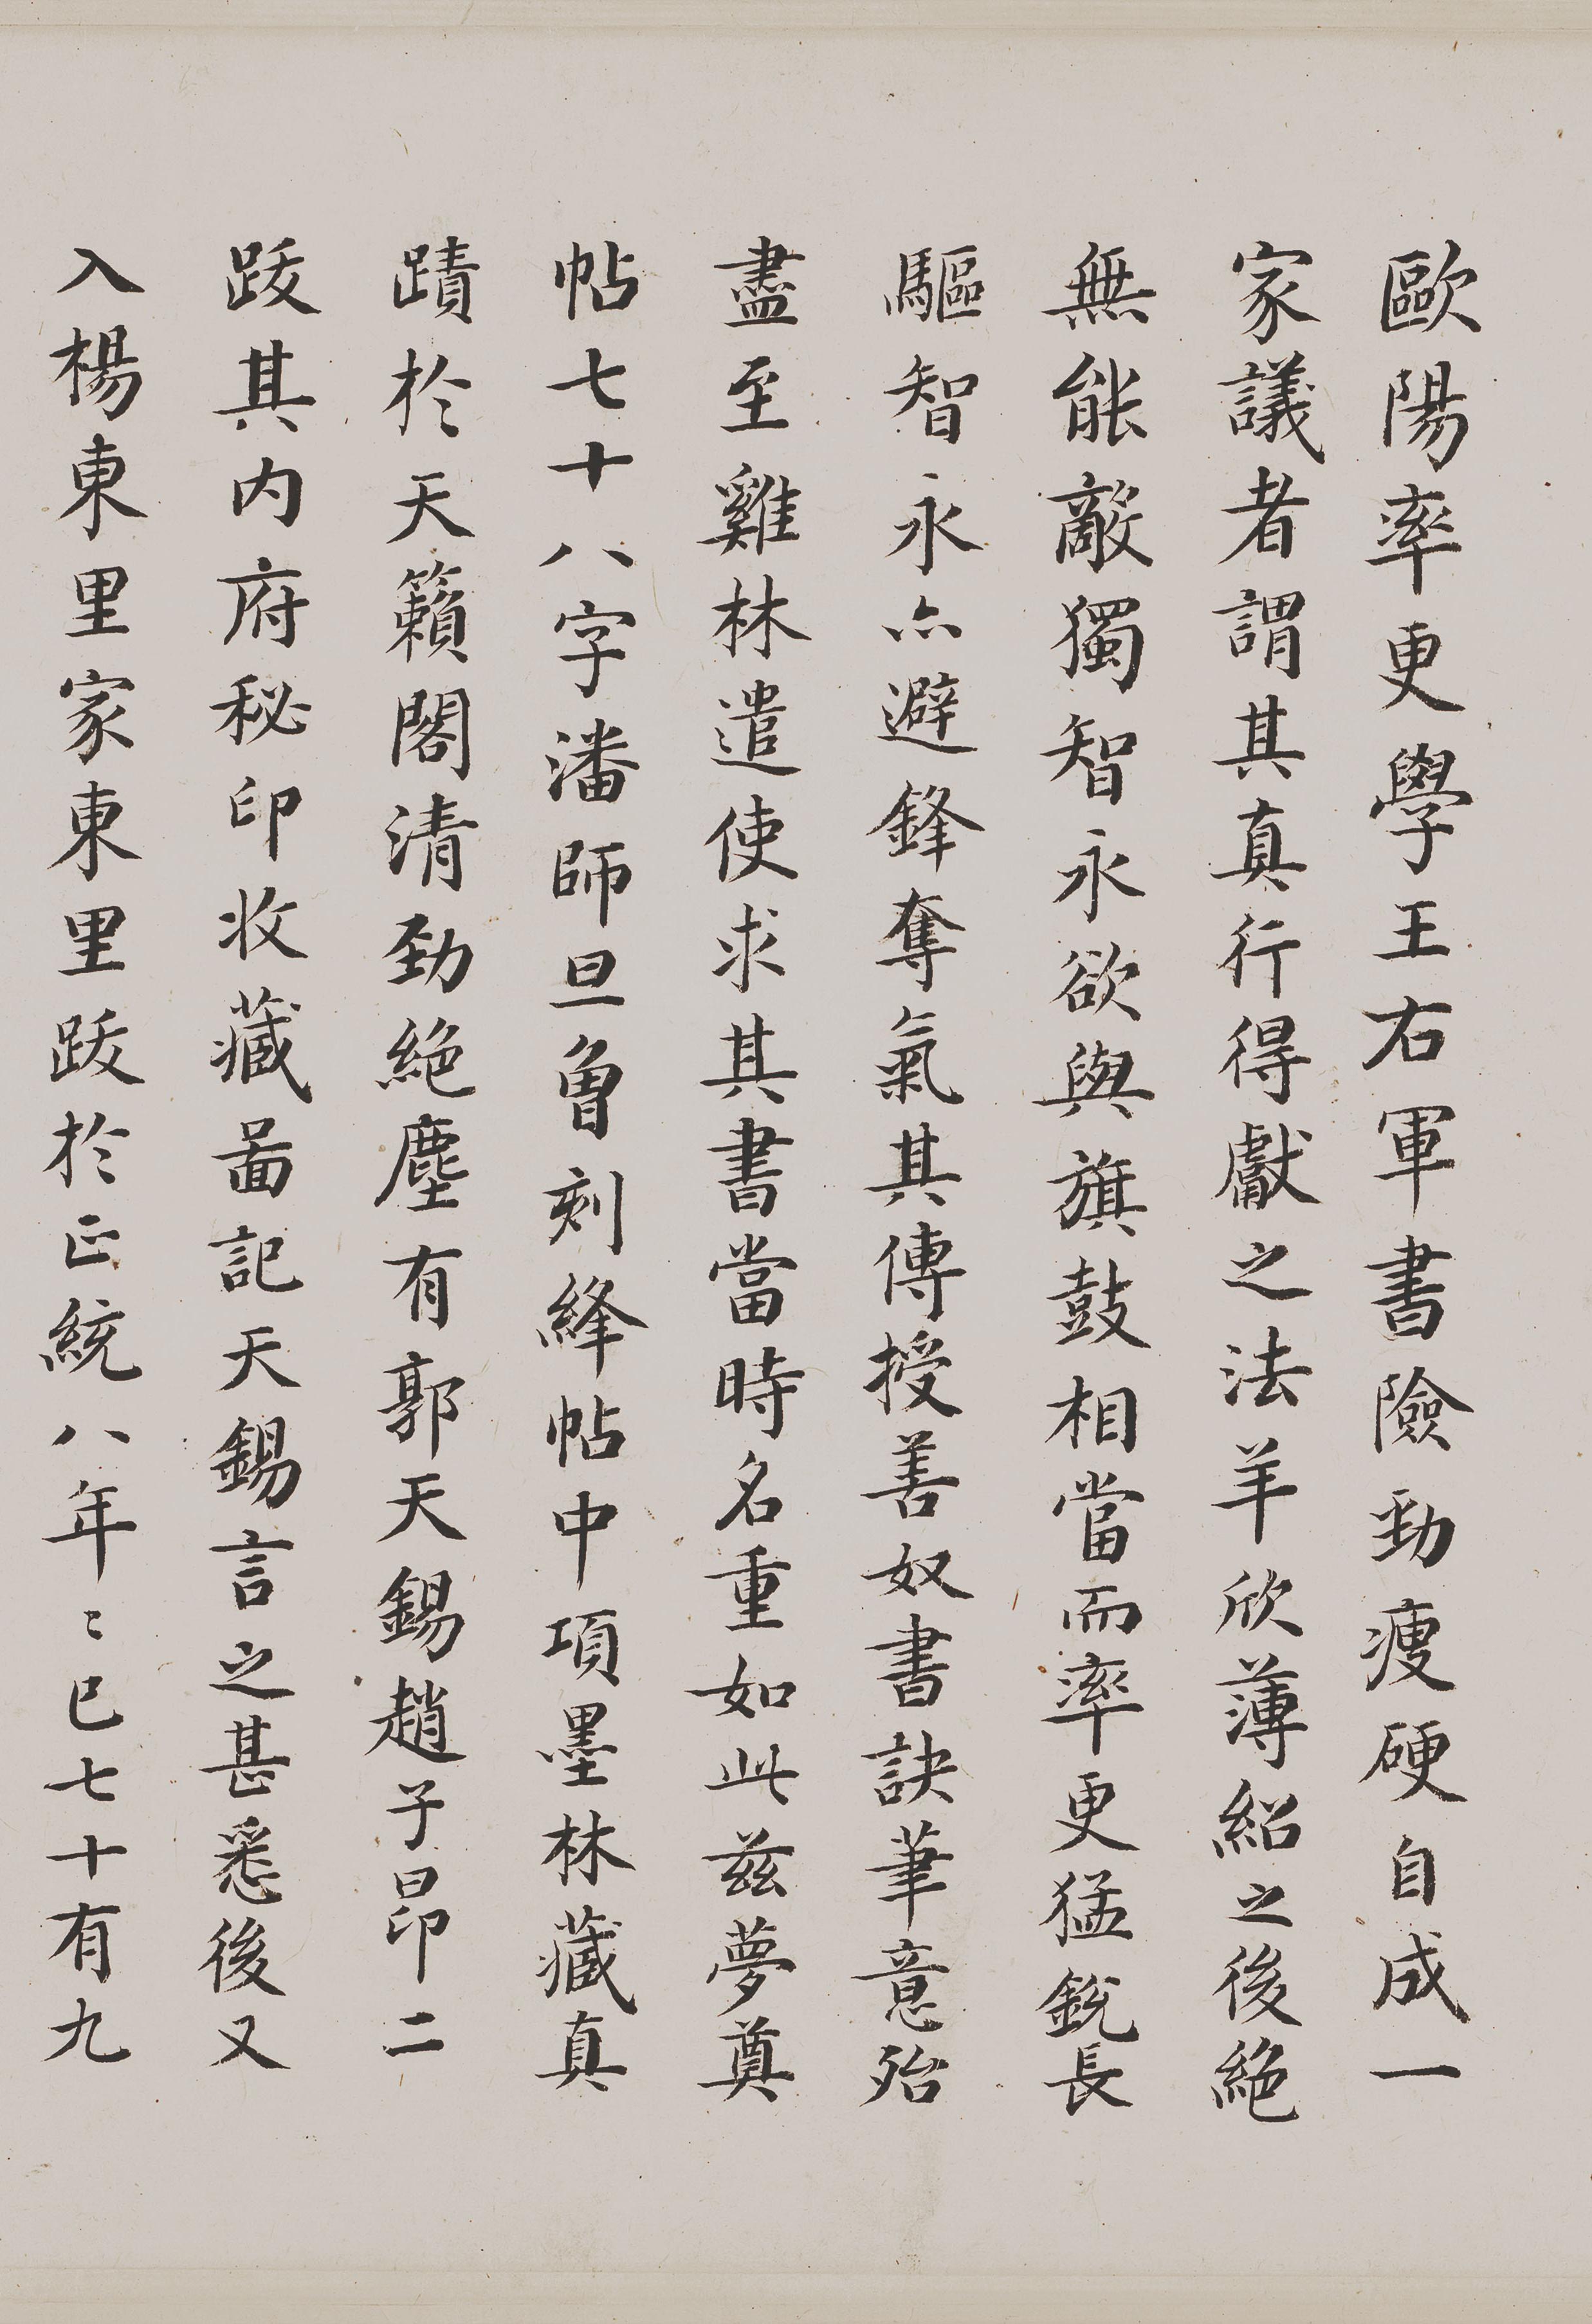 歐陽率更學王右軍書險勁瘦硬自成一
家議者謂其真行得獻之法羊欣薄紹之後絕
無能敵獨智永欲與旗鼓相當而率更猛銳長
驅智永亦避鋒奪氣其傳授善奴書訣筆意殆
盡至雞林遣使求其書當時名重如此茲夢奠
帖七十八字潘師旦曾刻絳帖中項墨林藏真
蹟於天籟閣清勁絕塵有郭天錫趙子昂二
跋其內府秘印收藏啚記天錫言之甚悉後又
入楊東里家東里跋於正統八年年已七十有九